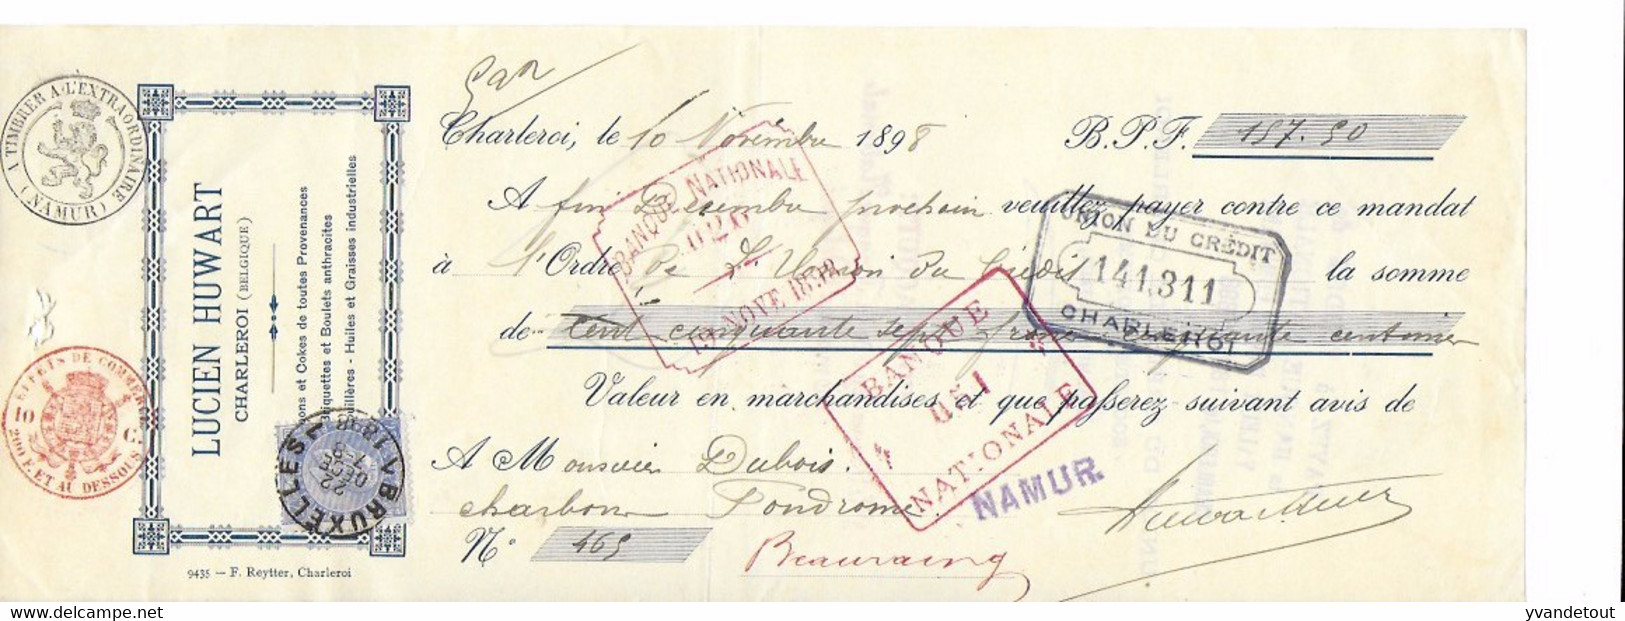 A TIMBRER A L'EXTRAORDINAIRE
(NAMUR)
EFFETS DE COMMERCE
10 C.
200 F. ET AU DESSOUS
LUCIEN HUWART
CHARLEROI (BELGIQUE)
ons et Cokes de toutes Provenances
Briquettes et Boulets anthracites
ouillères - Huiles et Graisses industrielles
BRUXELLES
22
DECE
1898
9435 — F. Reytter, Charleroi
Charleroi, le 10 Novembre 1898 B.P.F. 157.50
A fin Décembre prochain veuillez payer contre ce mandat
à l'Ordre de l'Union du Crédit la somme
de Cent cinquante sept francs cinquante centimes
Valeur en marchandises et que passerez suivant avis de
A Monsieur Dubois.
charbons Pondrome
N° 465
Beauraing
BANQUE NATIONALE
19 NOVE 1898
UNION DU CRÉDIT
141,311
CHARLEROI
BANQUE
NATIONALE
NAMUR.
yvandetout